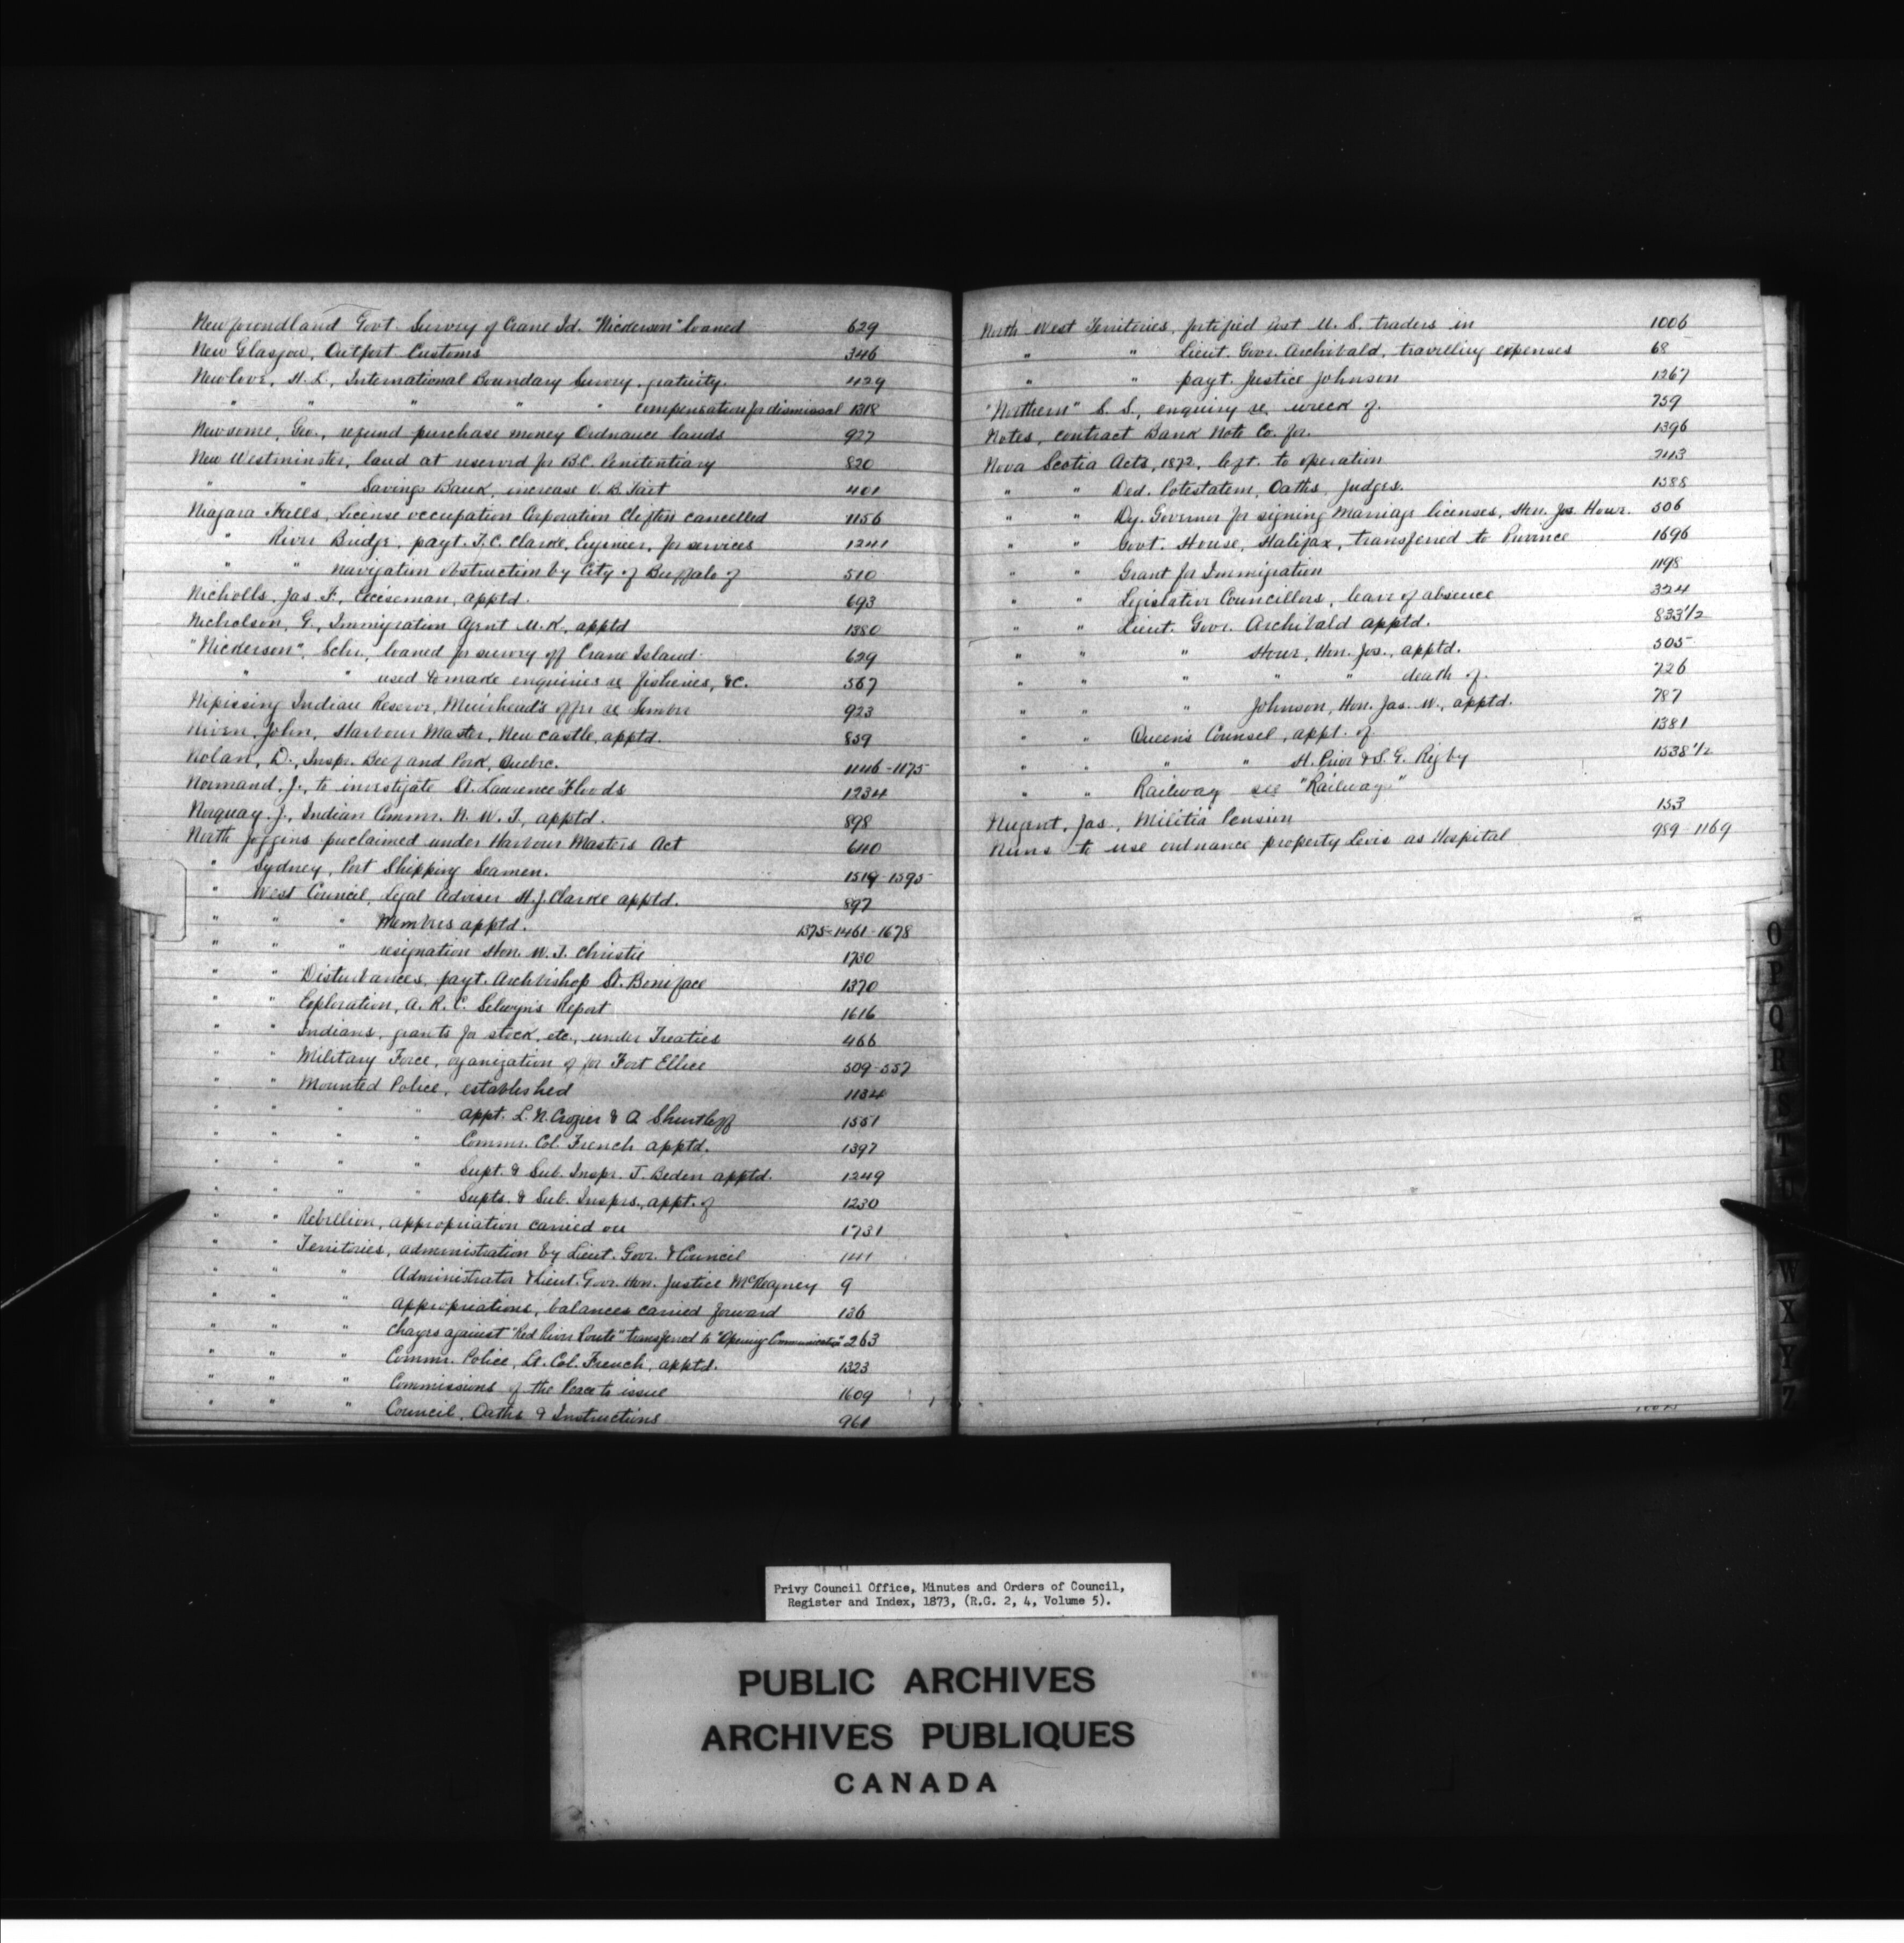 Newfoundland Govt. Survey of Crane Id. "Nickerson" loaned 629
New Glasgow, Outport Customs 346
Newlove, H. L., International Boundary Survey, gratuity. 429
" " " " " compensation for dismissal 1318
Newsome, Geo., refund purchase money Ordnance lands 927
New Westminster, land at reserved for B.C. Penitentiary 820
" " Savings Bank, increase 401
Niagara Falls, License occupation Corporation Clifton cancelled 1156
" River Bridge, payt. T. C. Clarke, Engineer, for services 1241
" " navigation obstruction by City of Buffalo of 510
Nicholls, Jas. F., appt'd. 693
Nicholson, G., Immigration Agent U.K., apptd 1380
"Nickerson", Schr., loaned for survey off Crane Island. 629
" " used to make enquiries re fisheries, &c. 567
Nipissing Indian Reserve, Muirhead's offer re Timber 923
Niven, John, Harbour Master, Newcastle, apptd. 859
Nolan, D., Inspr. Beef and Pork, Quebec. 1146-1175
Normand, J., to investigate St. Laurence Floods 1234
Norquay, J., Indian Commr. N. W. T., apptd. 898
North Joggins proclaimed under Harbour Masters Act 640
" Sydney, Port Shipping Seamen. 1519-1595
" West Council, Legal Adviser H. J. Clarke apptd. 897
" " " Members apptd. 1375-1461-1678
" " " resignation Hon. W. J. Christie 1730
" " Disturbances, payt. Archbishop St. Boniface 1370
" " Exploration, A. R. C. Selwyn's Report 1616
" " Indians, grants for stock, etc., under Treaties 466
" " Military Force, organization of for Fort Ellice 509-557
" " Mounted Police, established 1134
" " " " appt. L. N. Crozier & A Shurtleff 1551
" " " " Commr. Col. French apptd. 1397
" " " " Supt. & Sub. Inspr. J. Beden apptd. 1249
" " " " Supts. & Sub. Insprs., appt. of 1230
" " Rebellion, appropriation carried on 1731
" " Territories, administration by Lieut. Govr. & Council 141
" " " Administrator & Lieut. Govr. Hon. Justice McKeagney 9
" " " Appropriations, balances carried forward 136
" " " Charges against "Red River Route" transferred to "Opening Communication" 263
" " " Commr. Police, Lt. Col. French, apptd. 1323
" " " Commissions of the Peace to issue 1609
" " " Council, Oaths & Instructions 961
North West Territories, fortified post U. S. traders in 1006
" " Lieut. Govr. Archibald, travelling expenses 68
" " payt. Justice Johnson 1267
"Northern" S. S., enquiry re. wreck of. 759
Notes, contract Bank Note Co. for. 1396
Nova Scotia Acts, 1872, left to operation 243
" " Ded. Potestatem, Oaths, Judges. 1588
" " Dy. Governor for signing Marriage licenses, Hon. Jos. Howe. 506
" " Govt. House, Halifax, transferred to Province 1696
" " Grant for Immigration 1198
" " Legislative Councillors, leave of absence 324
" " Lieut. Govr. Archibald apptd. 833 1/2
" " " Howe, Hon. Jos., apptd. 505
" " " " " death of. 726
" " " Johnson, Hon. Jas. W., apptd. 787
" " Queen's Counsel, appt. of 1381
" " " " H. Prior & S. G. Rigby 1538 1/2
" " Railway see "Railways"
Nugent, Jas., Militia Pension 153
Nuns to use ordnance property Levis as Hospital 989-1169
O
P
Q
R
S
T
W
X
Y
Z
Privy Council Office, Minutes and Orders of Council,
Register and Index, 1873, (R.G. 2, 4, Volume 5).
PUBLIC ARCHIVES
ARCHIVES PUBLIQUES
CANADA